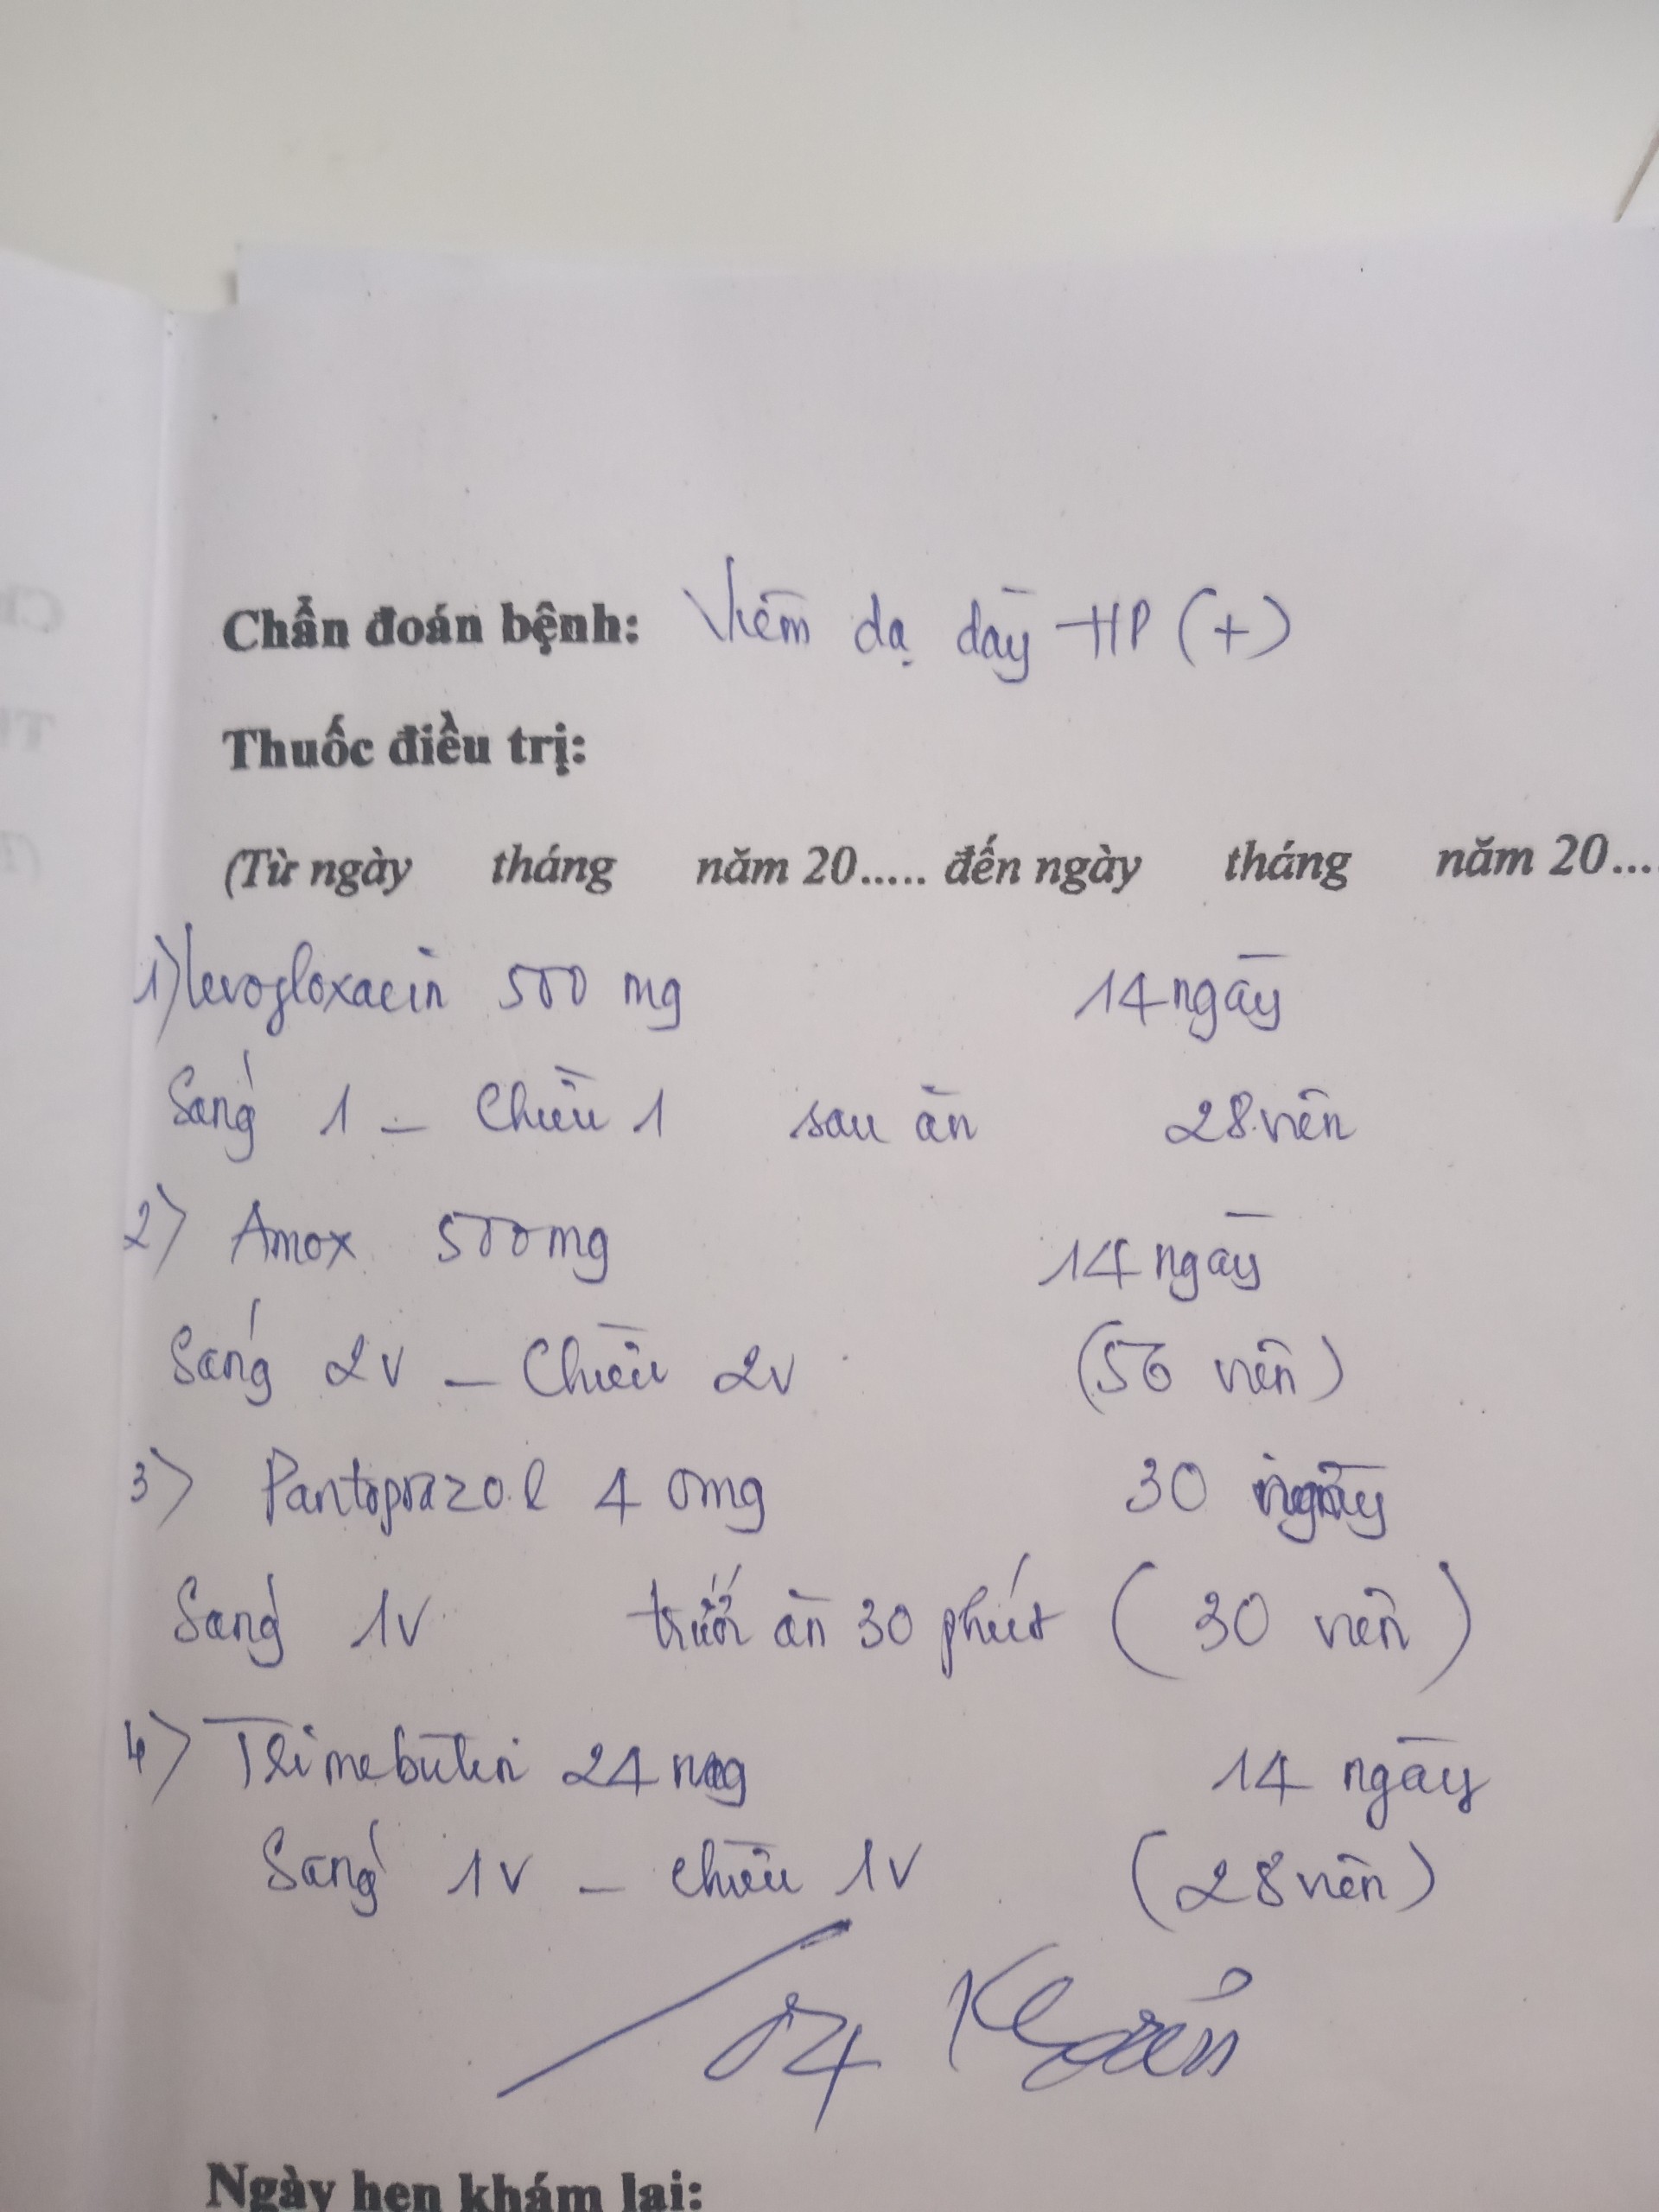 Chẩn đoán bệnh: Viêm dạ dày HP (+)
Thuốc điều trị:
(Từ ngày tháng năm 20..... đến ngày tháng năm 20....
1) levofloxacin 500 mg 14 ngày
Sáng 1 - Chiều 1 sau ăn 28 viên
2) Amox 500mg 14 ngày
Sáng 2v - Chiều 2v (56 viên)
3) Pantoprazol 40mg 30 ngày
Sáng 1v trước ăn 30 phút (30 viên)
4) Trimebutin 24mg 14 ngày
Sáng 1v - chiều 1v (28 viên)
04 Khoản
Ngày hẹn khám lại: